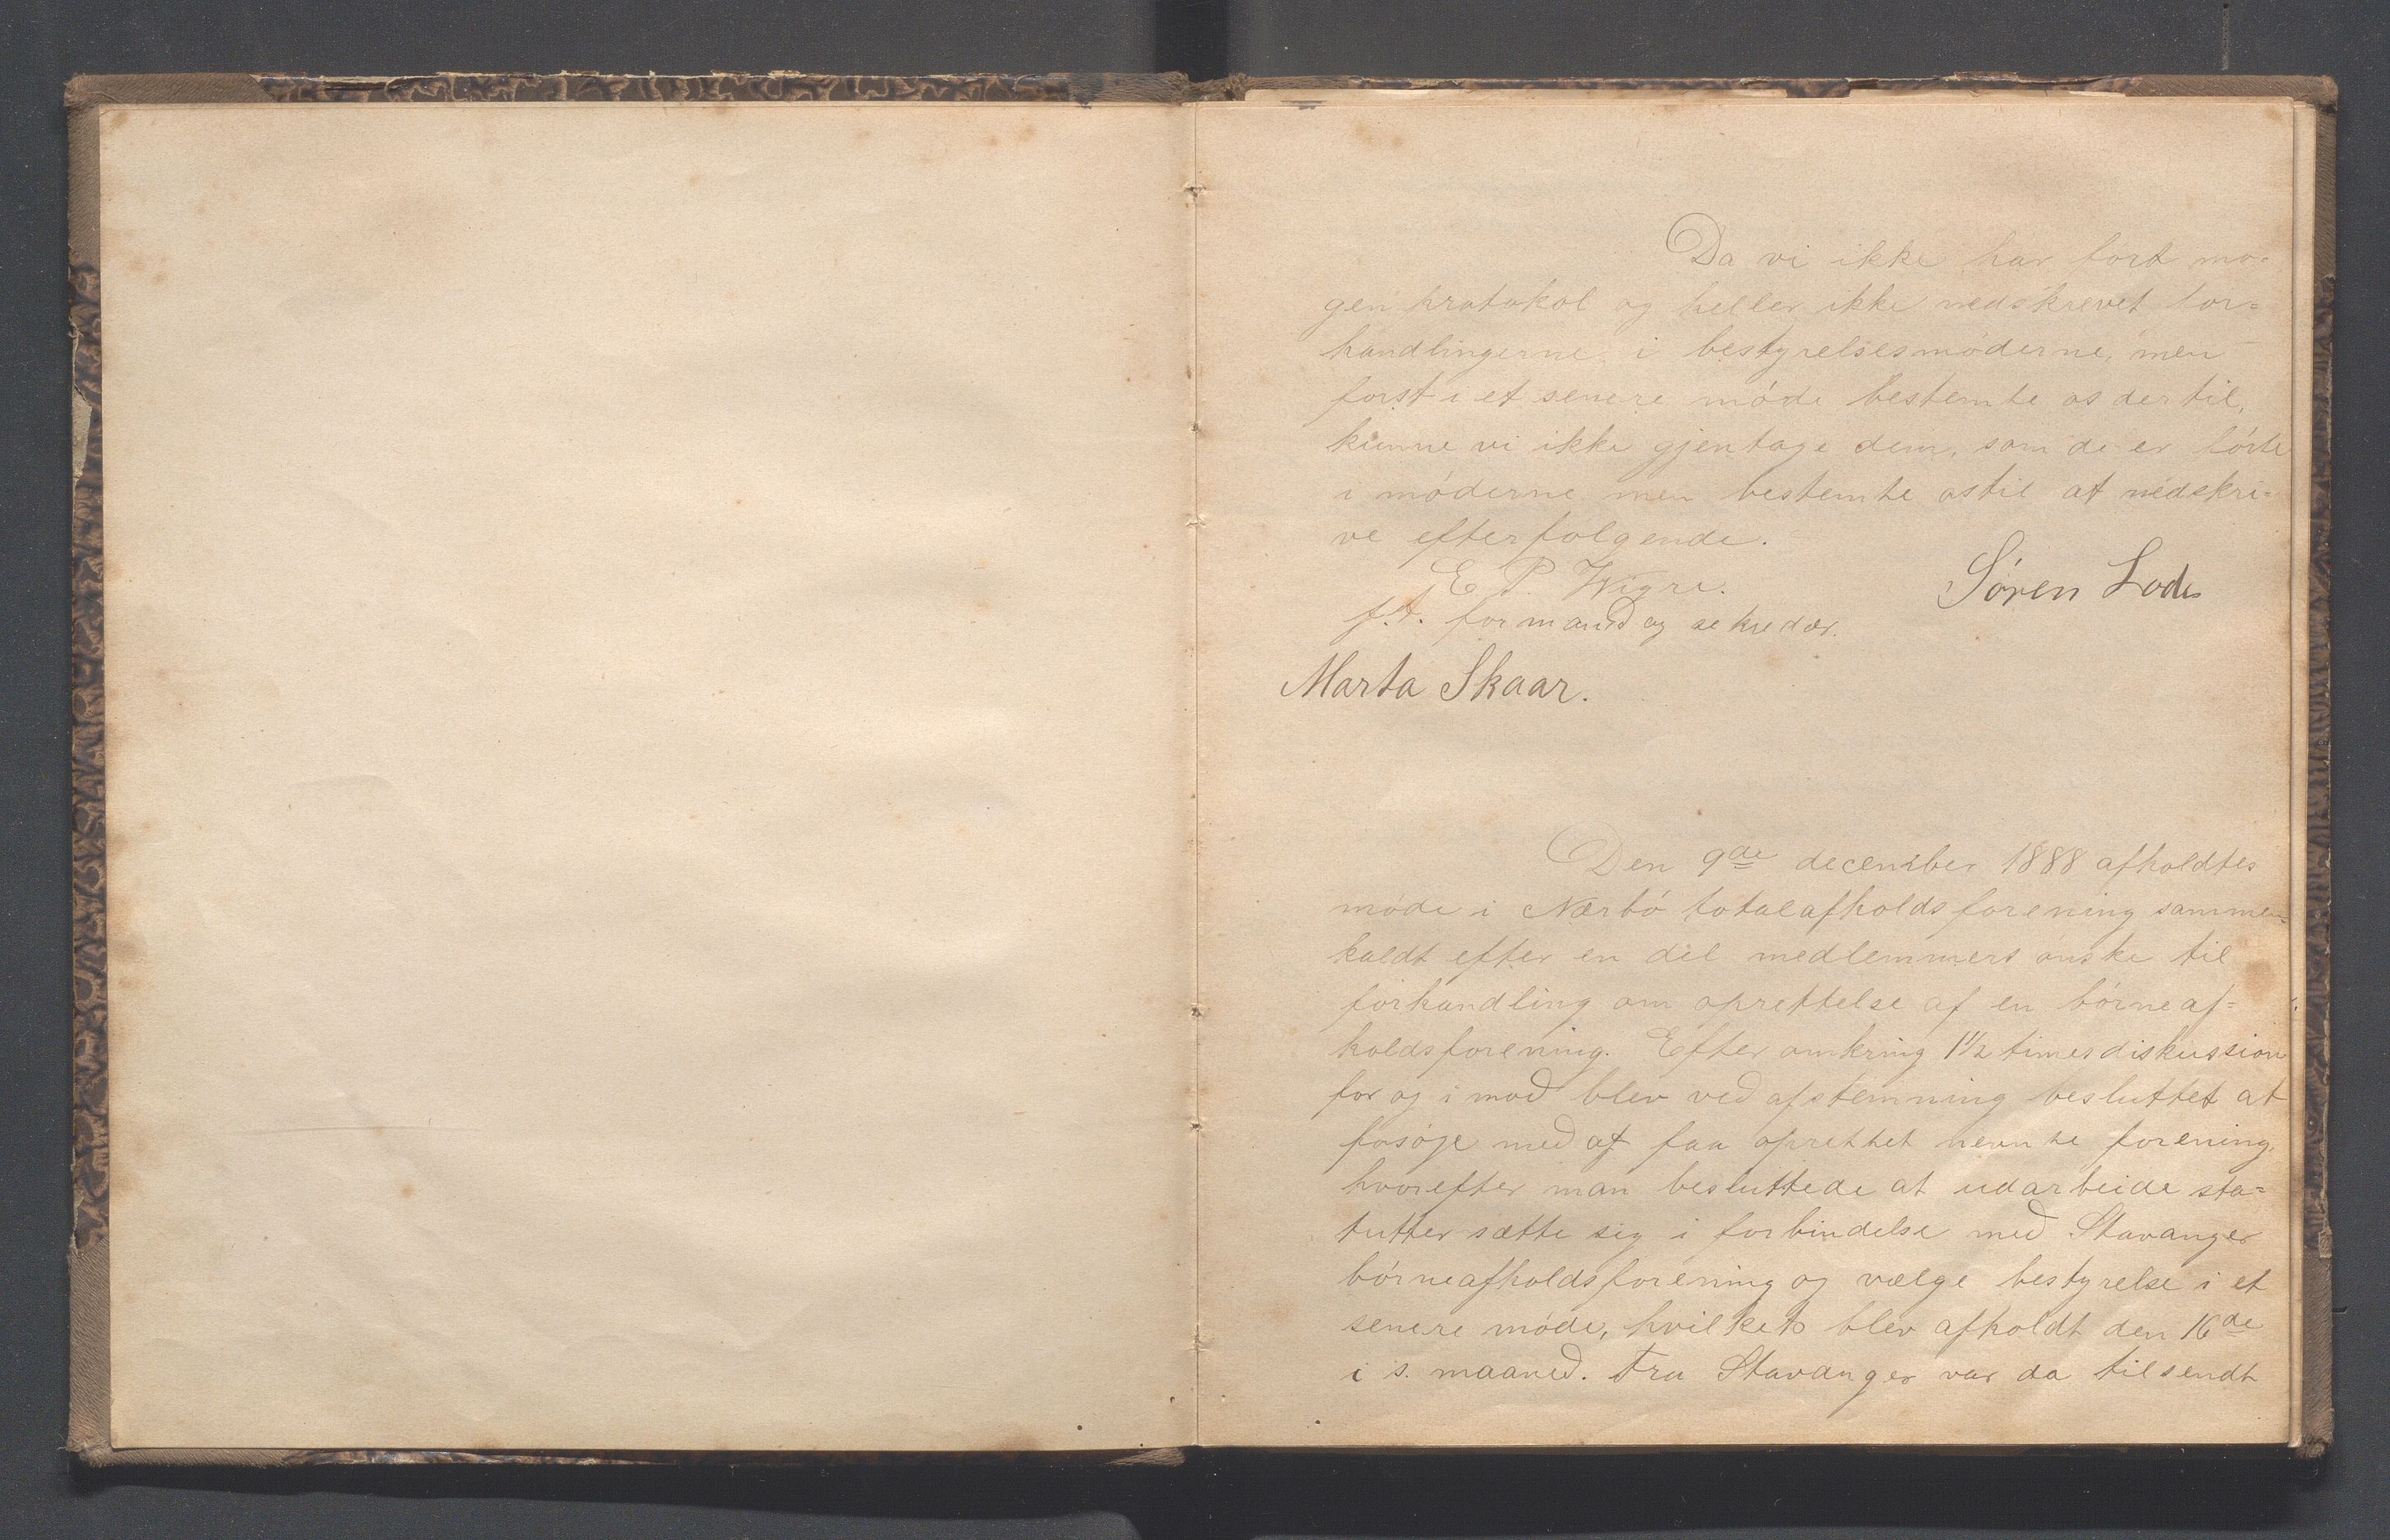 Da vi ikke har ført no-
gen protokol og heller ikke nedskrevet for=
handlingerne i bestyrelsesmøderne, men
først i et senere møde bestemte os dertil,
kunne vi ikke gjentage dem, som de er førte
i møderne men bestemte os til at nedskri=
ve efterfølgende.
E P. Wigre.
f.t. formand og sekredær.
Søren Lode
Marta Skaar.
Den 9de december 1888 afholdtes
møde i Nærbø totalafholdsforening sammen=
kaldt efter en del medlemmers ønske til
forhandling om oprettelse af en børneaf=
holdsforening. Efter omkring 1½ times diskussion
for og imod blev ved afstemning besluttet at
forsøge med at faa oprettet nevnte forening,
hvorefter man besluttede at udarbeide sta=
tutter sætte sig i forbindelse med Stavanger
børneafholdsforening og vælge bestyrelse i et
senere møde, hvilket blev afholdt den 16de
i s. maaned. Fra Stavanger var da tilsendt